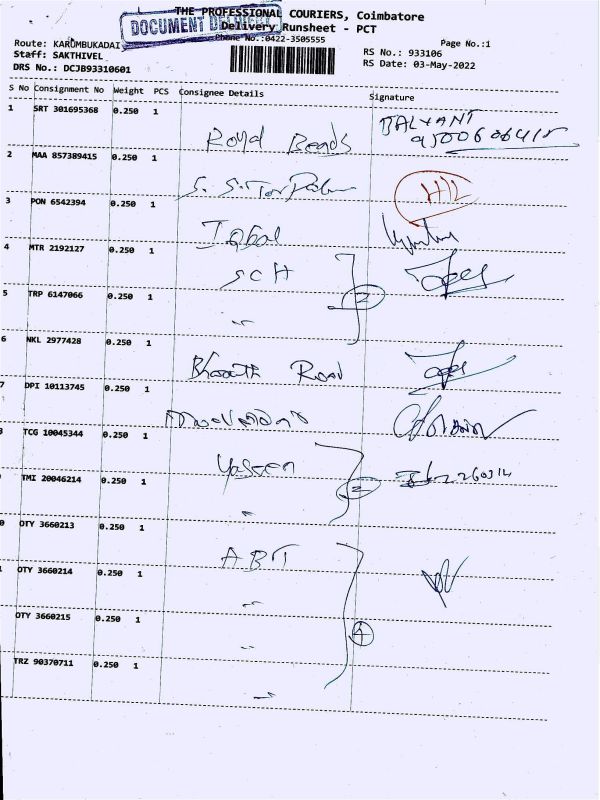 THE PROFESSIONAL COURIERS, Coimbatore
DOCUMENT
Delivery Runsheet - PCT
Phone No.:0422-3505555
Page No.:1
Route: KARUMBUKADAI
RS No.: 933106
Staff: SAKTHIVEL
RS Date: 03-May-2022
DRS No.: DCJB93310601
S No Consignment No Weight PCS Consignee Details Signature
1 SRT 301695368 0.250 1 Royal Beads BALVANT
2 MAA 857389415 0.250 1 S. S.
3 PON 6542394 0.250 1 Iqbal
4 MTR 2192127 0.250 1 SCH 2
5 TRP 6147066 0.250 1 "
6 NKL 2977428 0.250 1 Bharath Road
7 DPI 10113745 0.250 1
TCG 10045344 0.250 1 Yaseen 2
TMI 20046214 0.250 1 "
0 OTY 3660213 0.250 1 ABT
OTY 3660214 0.250 1 "
OTY 3660215 0.250 1 " 4
TRZ 90370711 0.250 1 "